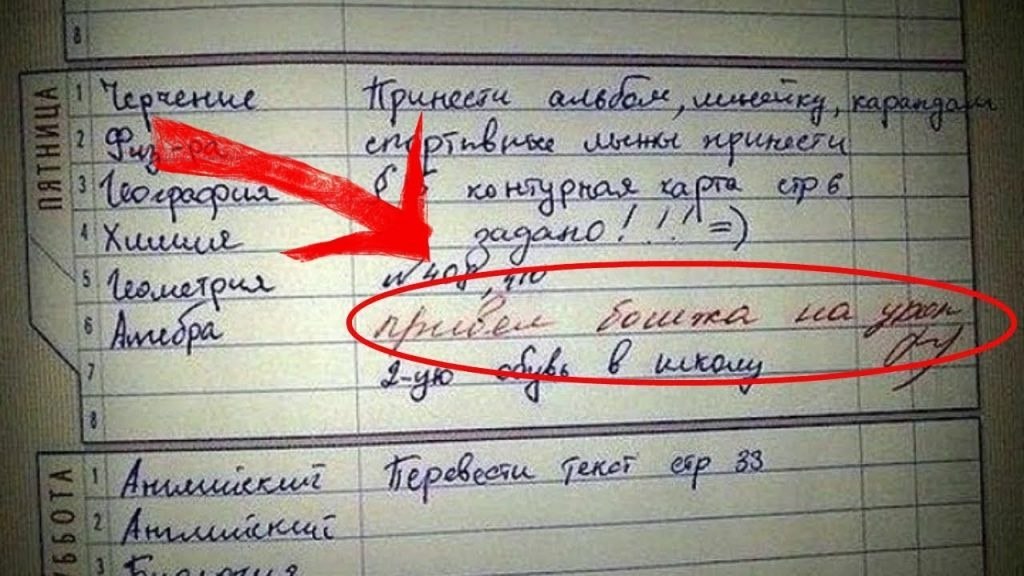 8
ПЯТНИЦА
1 Черчение Принести альбом, линейку, карандаш
2 Физ-ра спортивные лыжы принести
3 География контурная карта стр 6
4 Химия задано!!! =)
5 Геометрия № 408, 410
6 Алгебра привел бомжа на урок
7 2-ую обувь в школу
8
СУББОТА
1 Английский Перевести текст стр 33
2 Английский
3 Биология